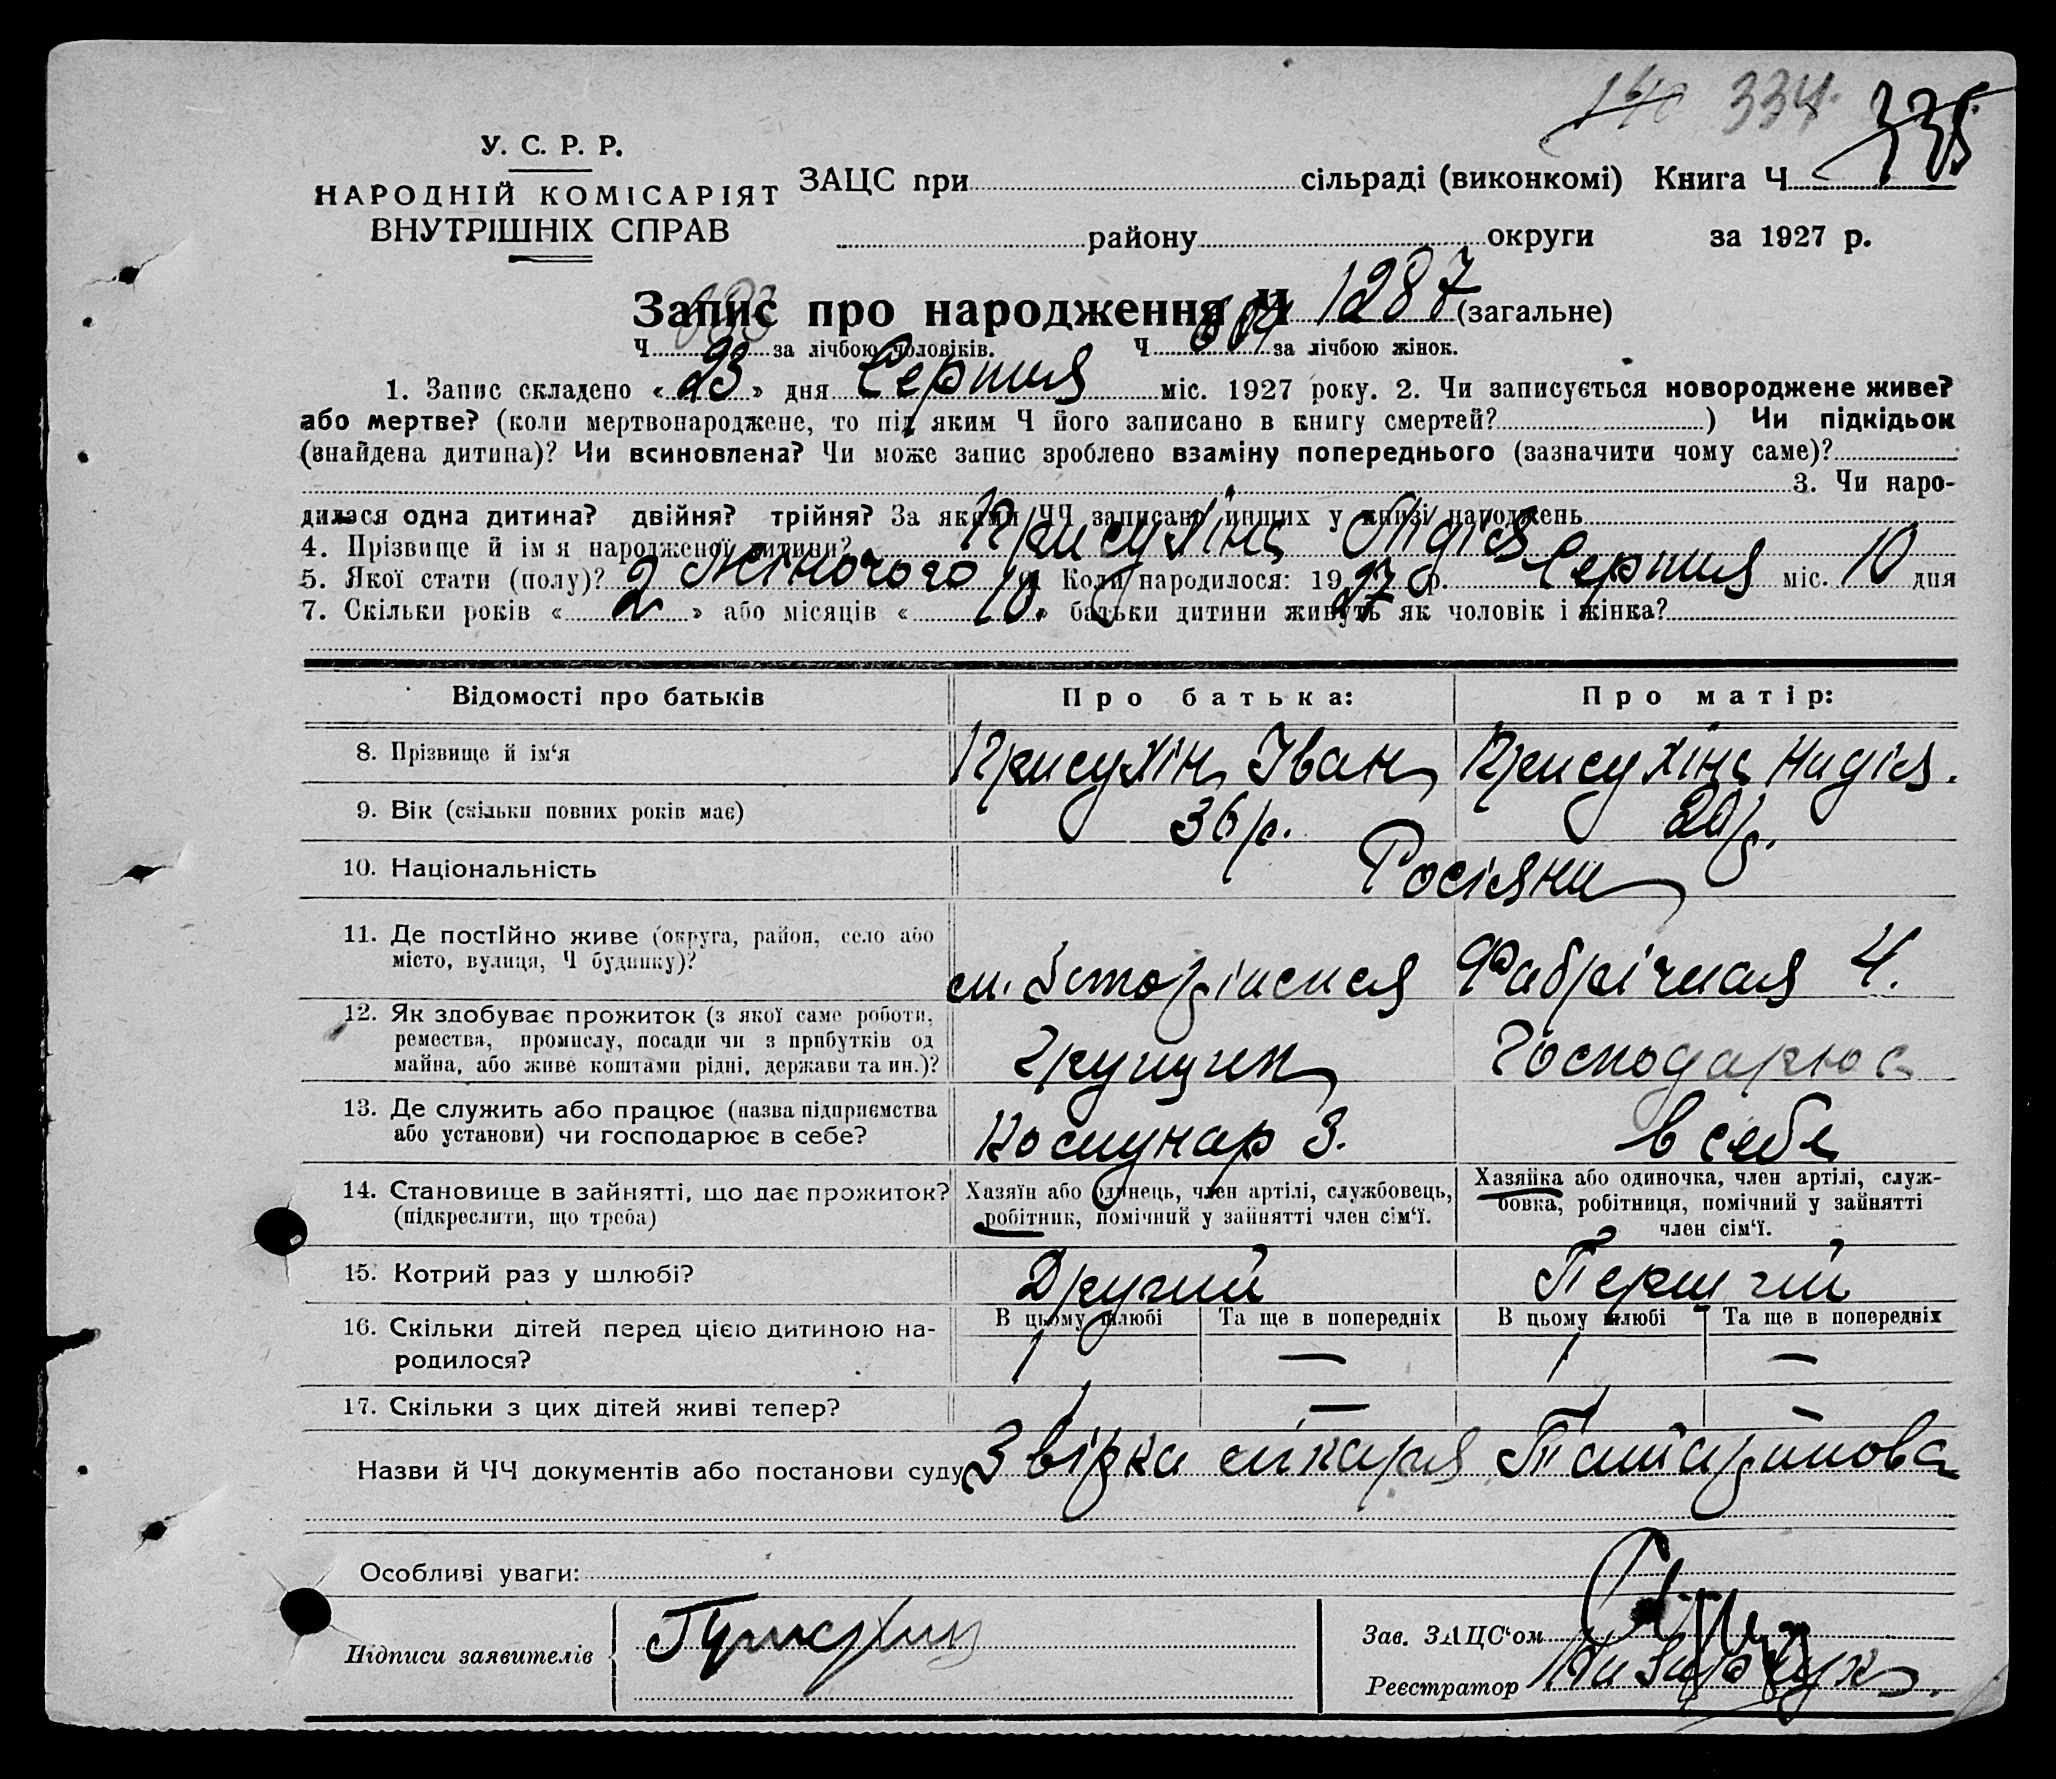 140 334. 335
У. С. Р. Р.
НАРОДНІЙ КОМІСАРІЯТ
ВНУТРІШНІХ СПРАВ
ЗАЦС при сільраді (виконкомі) Книга Ч
району округи за 1927 р.
Запис про народження Ч 1287 (загальне)
Ч за лічбою чоловіків. Ч 604 за лічбою жінок.
1. Запис складено «23» дня Серпня міс. 1927 року. 2. Чи записується новороджене живе?
або мертве? (коли мертвонароджене, то під яким Ч його записано в книгу смертей? ) Чи підкідьок
(знайдена дитина)? Чи всиновлена? Чи може запис зроблено взаміну попереднього (зазначити чому саме)?
3. Чи наро-
дилася одна дитина? двійня? трійня? За якими ЧЧ записано инших у книзі народжень
4. Прізвище й ім'я народженої дитини? Крисухіна Лідія
5. Якої стати (полу)? 2 Жіночого 6. Коли народилося: 1927 р. Серпня міс. 10 дня
7. Скільки років «2» або місяців «10» батьки дитини живуть як чоловік і жінка?
Відомості про батьків Про батька: Про матір:
8. Прізвище й ім'я Крисухін Іван Крисухіна Надія.
9. Вік (скільки повних років має) 36 р. 20 р.
10. Національність Росіяни
11. Де постійно живе (округа, район, село або
місто, вулиця, Ч будинку)? Фабрічная 4.
12. Як здобуває прожиток (з якої саме роботи,
ремества, промислу, посади чи з прибутків од
майна, або живе коштами рідні, держави та ин.)? Грущик Господарює
13. Де служить або працює (назва підприємства
або установи) чи господарює в себе? Комунар З. в себе
14. Становище в зайнятті, що дає прожиток?
(підкреслити, що треба)
Хазяїн або одинець, член артілі, службовець,
робітник, помічний у зайнятті член сім'ї.
Хазяйка або одиночка, член артілі, служ-
бовка, робітниця, помічний у зайнятті
член сім'ї.
15. Котрий раз у шлюбі? Другий Перший
16. Скільки дітей перед цією дитиною на-
родилося?
В цьому шлюбі Та ще в попередніх В цьому шлюбі Та ще в попередніх
1 — 1 —
17. Скільки з цих дітей живі тепер? 1 — 1 —
Назви й ЧЧ документів або постанови суду Звірка лікаря
Особливі уваги:
Підписи заявителів
Зав. ЗАЦС'ом
Реєстратор